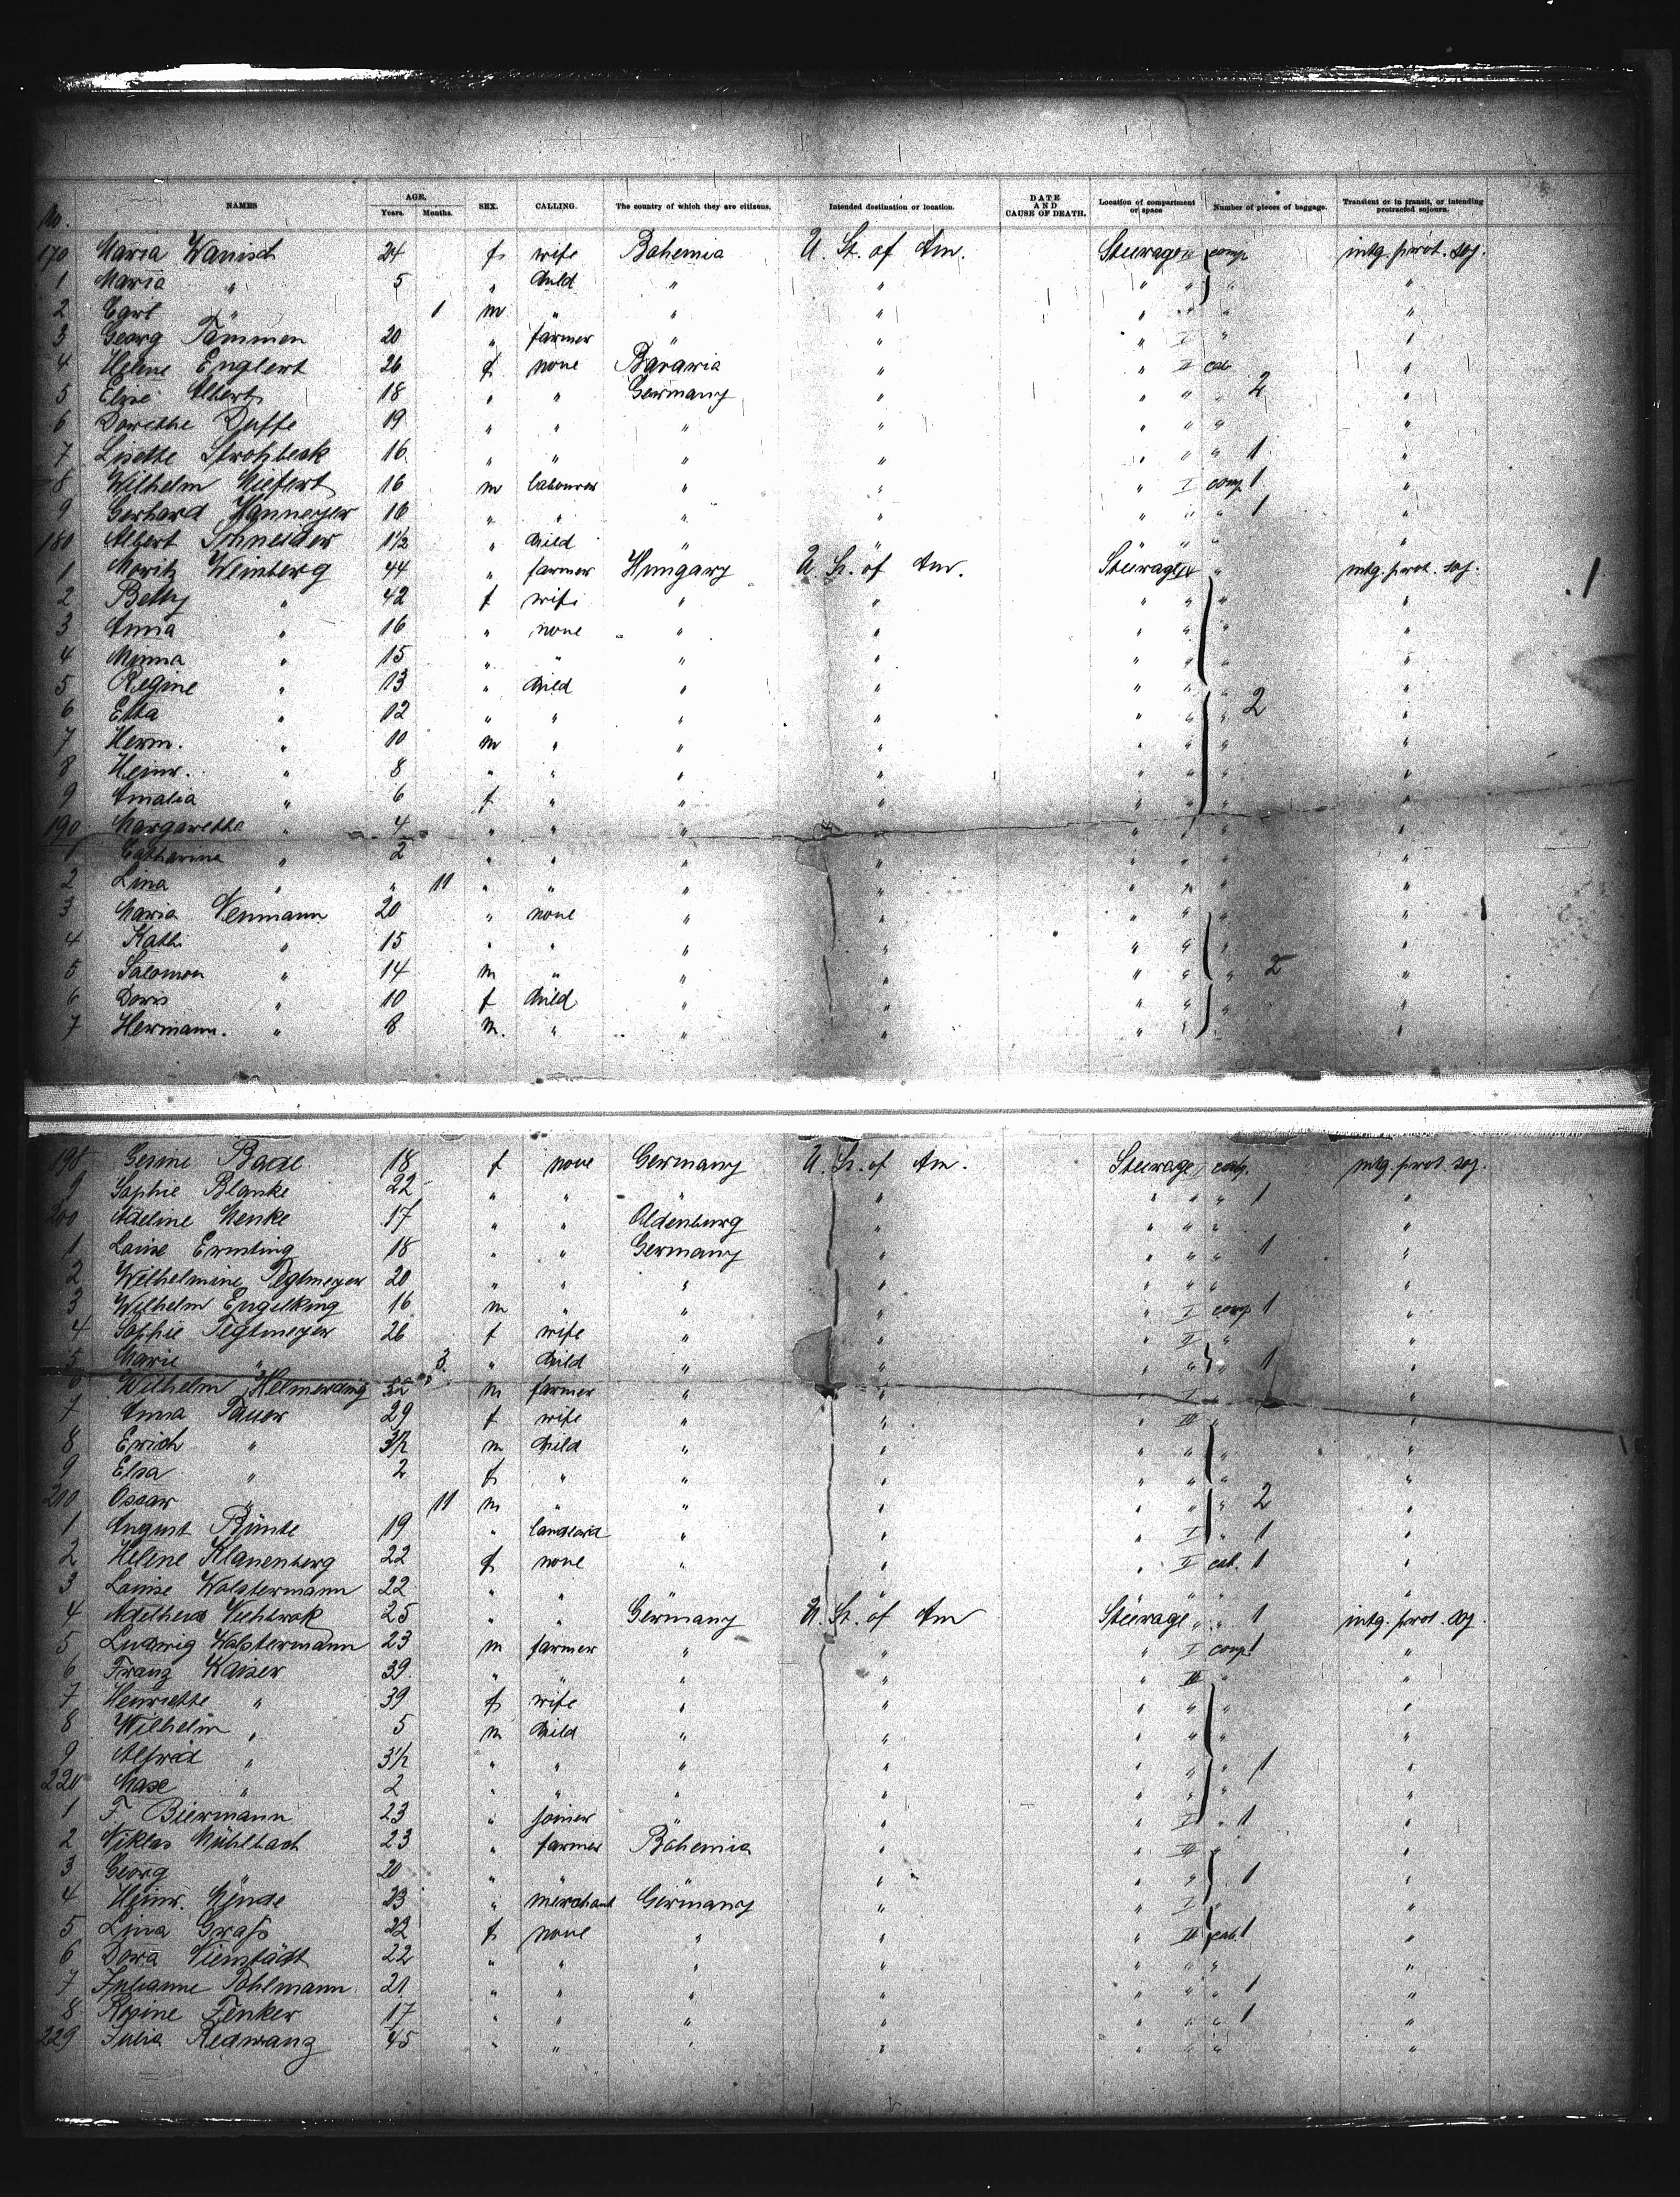 No. NAMES AGE, Years. Months. SEX. CALLING. The country of which they are citizens. Intended destination or location. DATE AND CAUSE OF DEATH. Location of compartment or space Number of pieces of baggage. Transient or in transit, or intending protracted sojourn.
170 Maria Wanisch 24 f wife Bohemia U. St. of Am. Steerage comp intg. prot. soj.
1 Maria " 5 " child " " " " " "
2 Carl " 1 m " " " " " " "
3 Georg Tammen 20 " farmer " " " I " "
4 Helene Englert 26 f none Bavaria " " II cab "
5 Elise Albert 18 " " Germany " " " " 2 "
6 Dorethe Duffe 19 " " " " " " " "
7 Lisette Strohbeck 16 " " " " " " " 1 "
8 Wilhelm Kiefert 16 m labourer " " " I comp 1 "
9 Gerhard Hanneyer 16 " " " " " " " 1 "
180 Albert Schneider 1½ " child " " " " " "
1 Moritz Weinberg 44 " farmer Hungary U. St. of Am. Steerage " intg. prot. soj.
2 Betty " 42 f wife " " " " " "
3 Anna " 16 " none " " " " " "
4 Minna " 15 " " " " " " " "
5 Regine " 13 " child " " " " " "
6 Etta " 12 " " " " " " " 2 "
7 Herm. " 10 m " " " " " " "
8 Heinr. " 8 " " " " " " " "
9 Amalia " 6 f " " " " " " "
190 Margarethe " 4 " " " " " " " "
1 Catharina " 2 " " " " " " " "
2 Lina " " 11 " " " " " " " "
3 Maria Neumann 20 " none " " " " " "
4 Kathi " 15 " " " " " " " "
5 Salomon " 14 m " " " " " " 2 "
6 Doris " 10 f child " " " " " "
7 Hermann. " 8 m. " " " " " " "
198 Gesine Bade 18 f none Germany U. St. of Am. Steerage comp. intg. prot. soj.
9 Sophie Blanke 22 " " " " " " " 1 "
200 Adeline Menke 17 " " Oldenburg " " " " "
1 Louise Ernsting 18 " " Germany " " " " 1 "
2 Wilhelmine Tegtmeyer 20 " " " " " " " "
3 Wilhelm Engelking 16 m " " " " I comp 1 "
4 Sophie Tegtmeyer 26 f wife " " " II " "
5 Marie " 3 " child " " " " " 1 "
6 Wilhelm Helmerding 32 m farmer " " " I " "
7 Anna Pauer 29 f wife " " " " "
8 Erich " 3½ m child " " " " " "
9 Elsa " 2 f " " " " " " "
210 Oscar " 11 m " " " " " " 2 "
1 August Bünte 19 " " " " I " 1 "
2 Helene Klanenberg 22 f none " " " II cab. 1 "
3 Louise Wolstermann 22 " " " " " " "
4 25 " " Germany U. St. of Am Steerage " " 1 intg. prot. soj.
5 Ludwig Wolstermann 23 m farmer " " " I comp 1 "
6 Franz Kaiser 39 " " " " " III " "
7 Henriette " 39 f wife " " " " " "
8 Wilhelm " 5 m child " " " " " "
9 Alfred " 3½ " " " " " " " 1 "
220 Max " 2 " " " " " " " "
1 F Biermann 23 " joiner " " " I " 1 "
2 Niklas Mühlbach 23 " farmer Bohemia " " III " "
3 Georg " 20 " " " " " " " 1 "
4 Heinr. Hende 23 " merchant Germany " " I " "
5 Lina Graß 22 f none " " " II cab. 1 "
6 Dora Nienstädt 22 " " " " " " " "
7 Julianne Pohlmann 21 " " " " " " " 1 "
8 Rosine Fenker 17 " " " " " " " 1 "
229 Julia Redwanz 45 " " " " " " " "